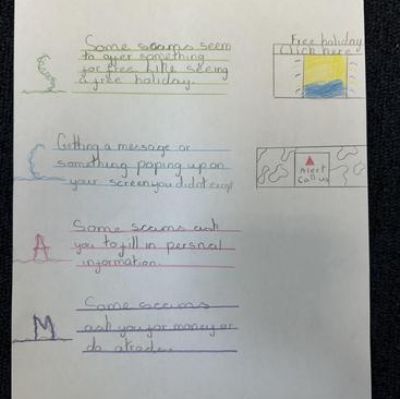 S
Some scams seem
to offer something
for free like seeing
a free holiday.
Free holiday
Click here
C
Getting a message or
something poping up on
your screen you didnt expt
Alert
Call us
A
Some scams ask
you to fill in persnal
information.
M
Some scams
ask you for money or
do a trade.